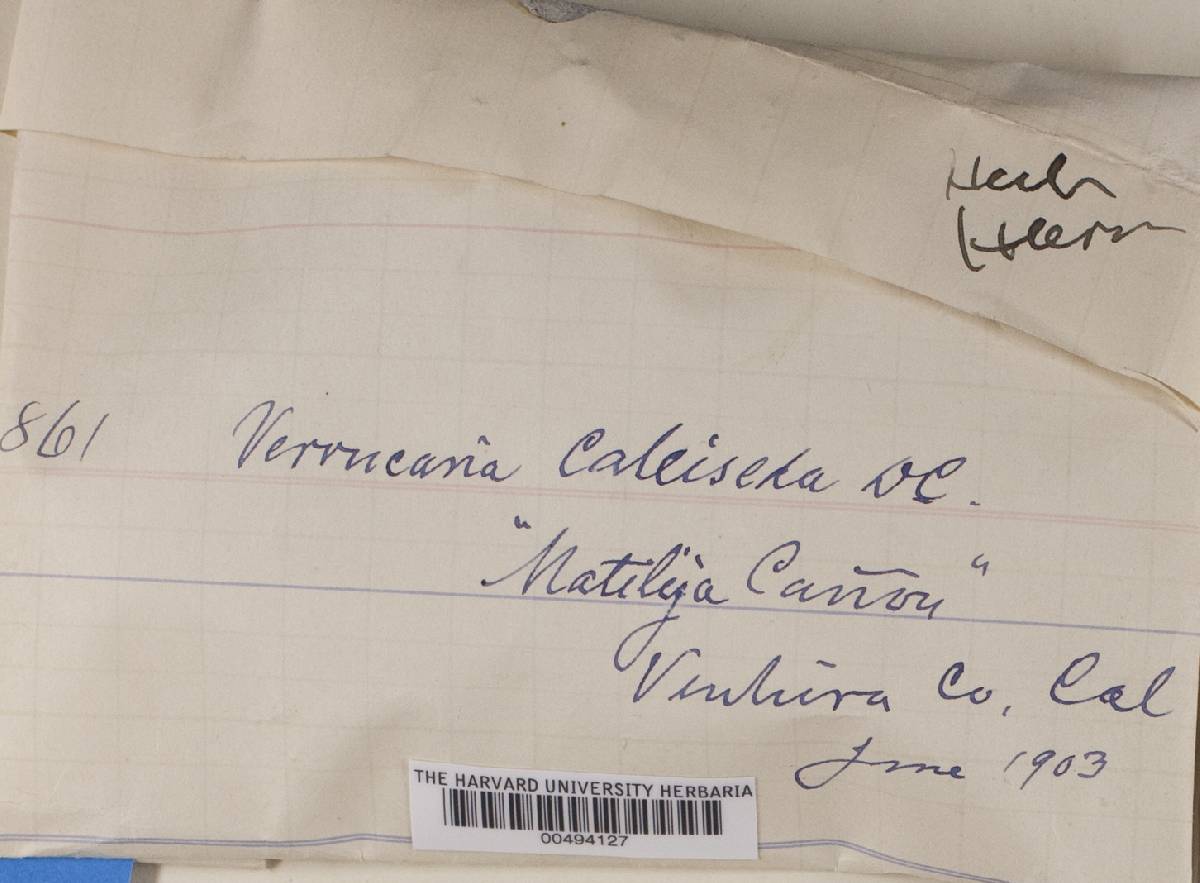 Herb
Hasse
861 Verrucaria Calciseda DC.
"Matilija Cañon"
Ventura Co, Cal
June 1903
THE HARVARD UNIVERSITY HERBARIA
00494127